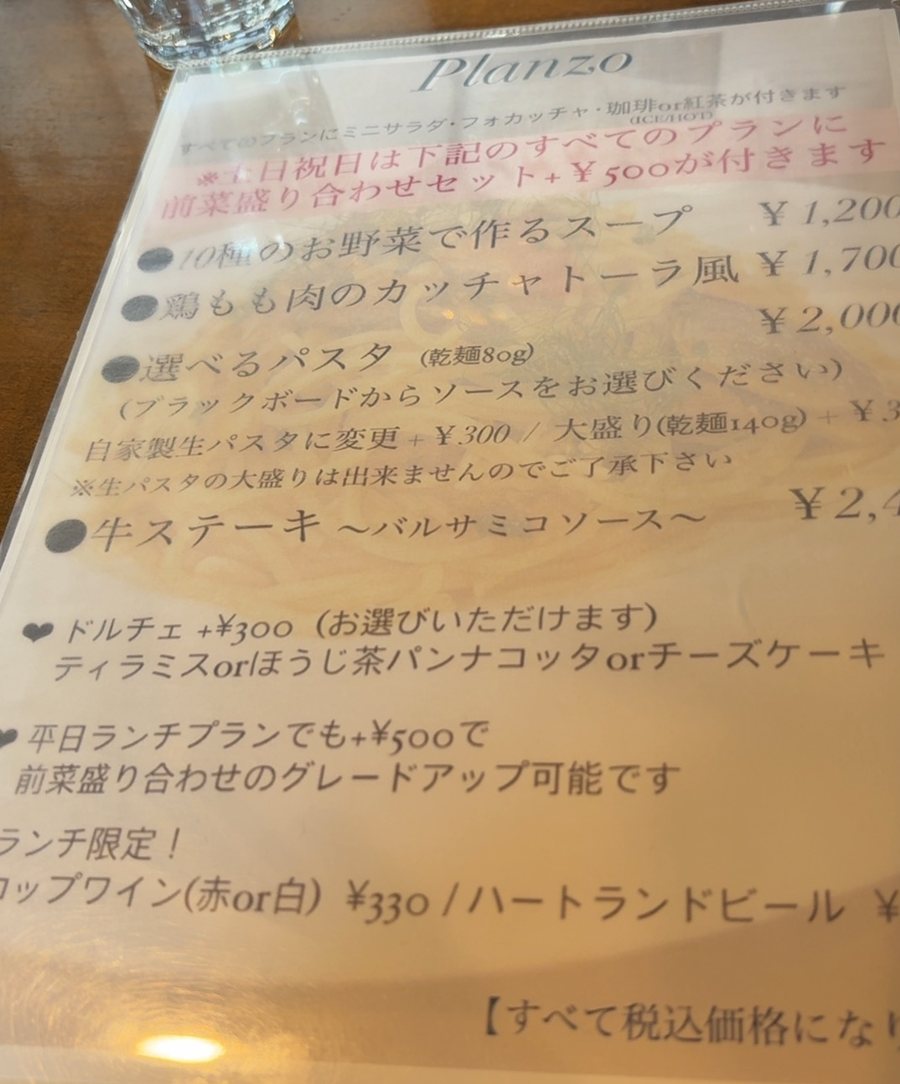 Planzo
すべてのプランにミニサラダ・フォカッチャ・珈琲or紅茶が付きます
(ICE/HOT)
※土日祝日は下記のすべてのプランに
前菜盛り合わせセット+¥500が付きます
●10種のお野菜で作るスープ ¥1,200
●鶏もも肉のカッチャトーラ風 ¥1,700
¥2,000
●選べるパスタ (乾麺80g)
(ブラックボードからソースをお選びください)
自家製生パスタに変更+¥300 / 大盛り(乾麺140g) + ¥3
※生パスタの大盛りは出来ませんのでご了承下さい
●牛ステーキ 〜バルサミコソース〜 ¥2,4
❤ドルチェ +¥300 (お選びいただけます)
ティラミスorほうじ茶パンナコッタorチーズケーキ
❤平日ランチプランでも+¥500で
前菜盛り合わせのグレードアップ可能です
ランチ限定!
ップワイン(赤or白) ¥330 / ハートランドビール ¥
【すべて税込価格になり